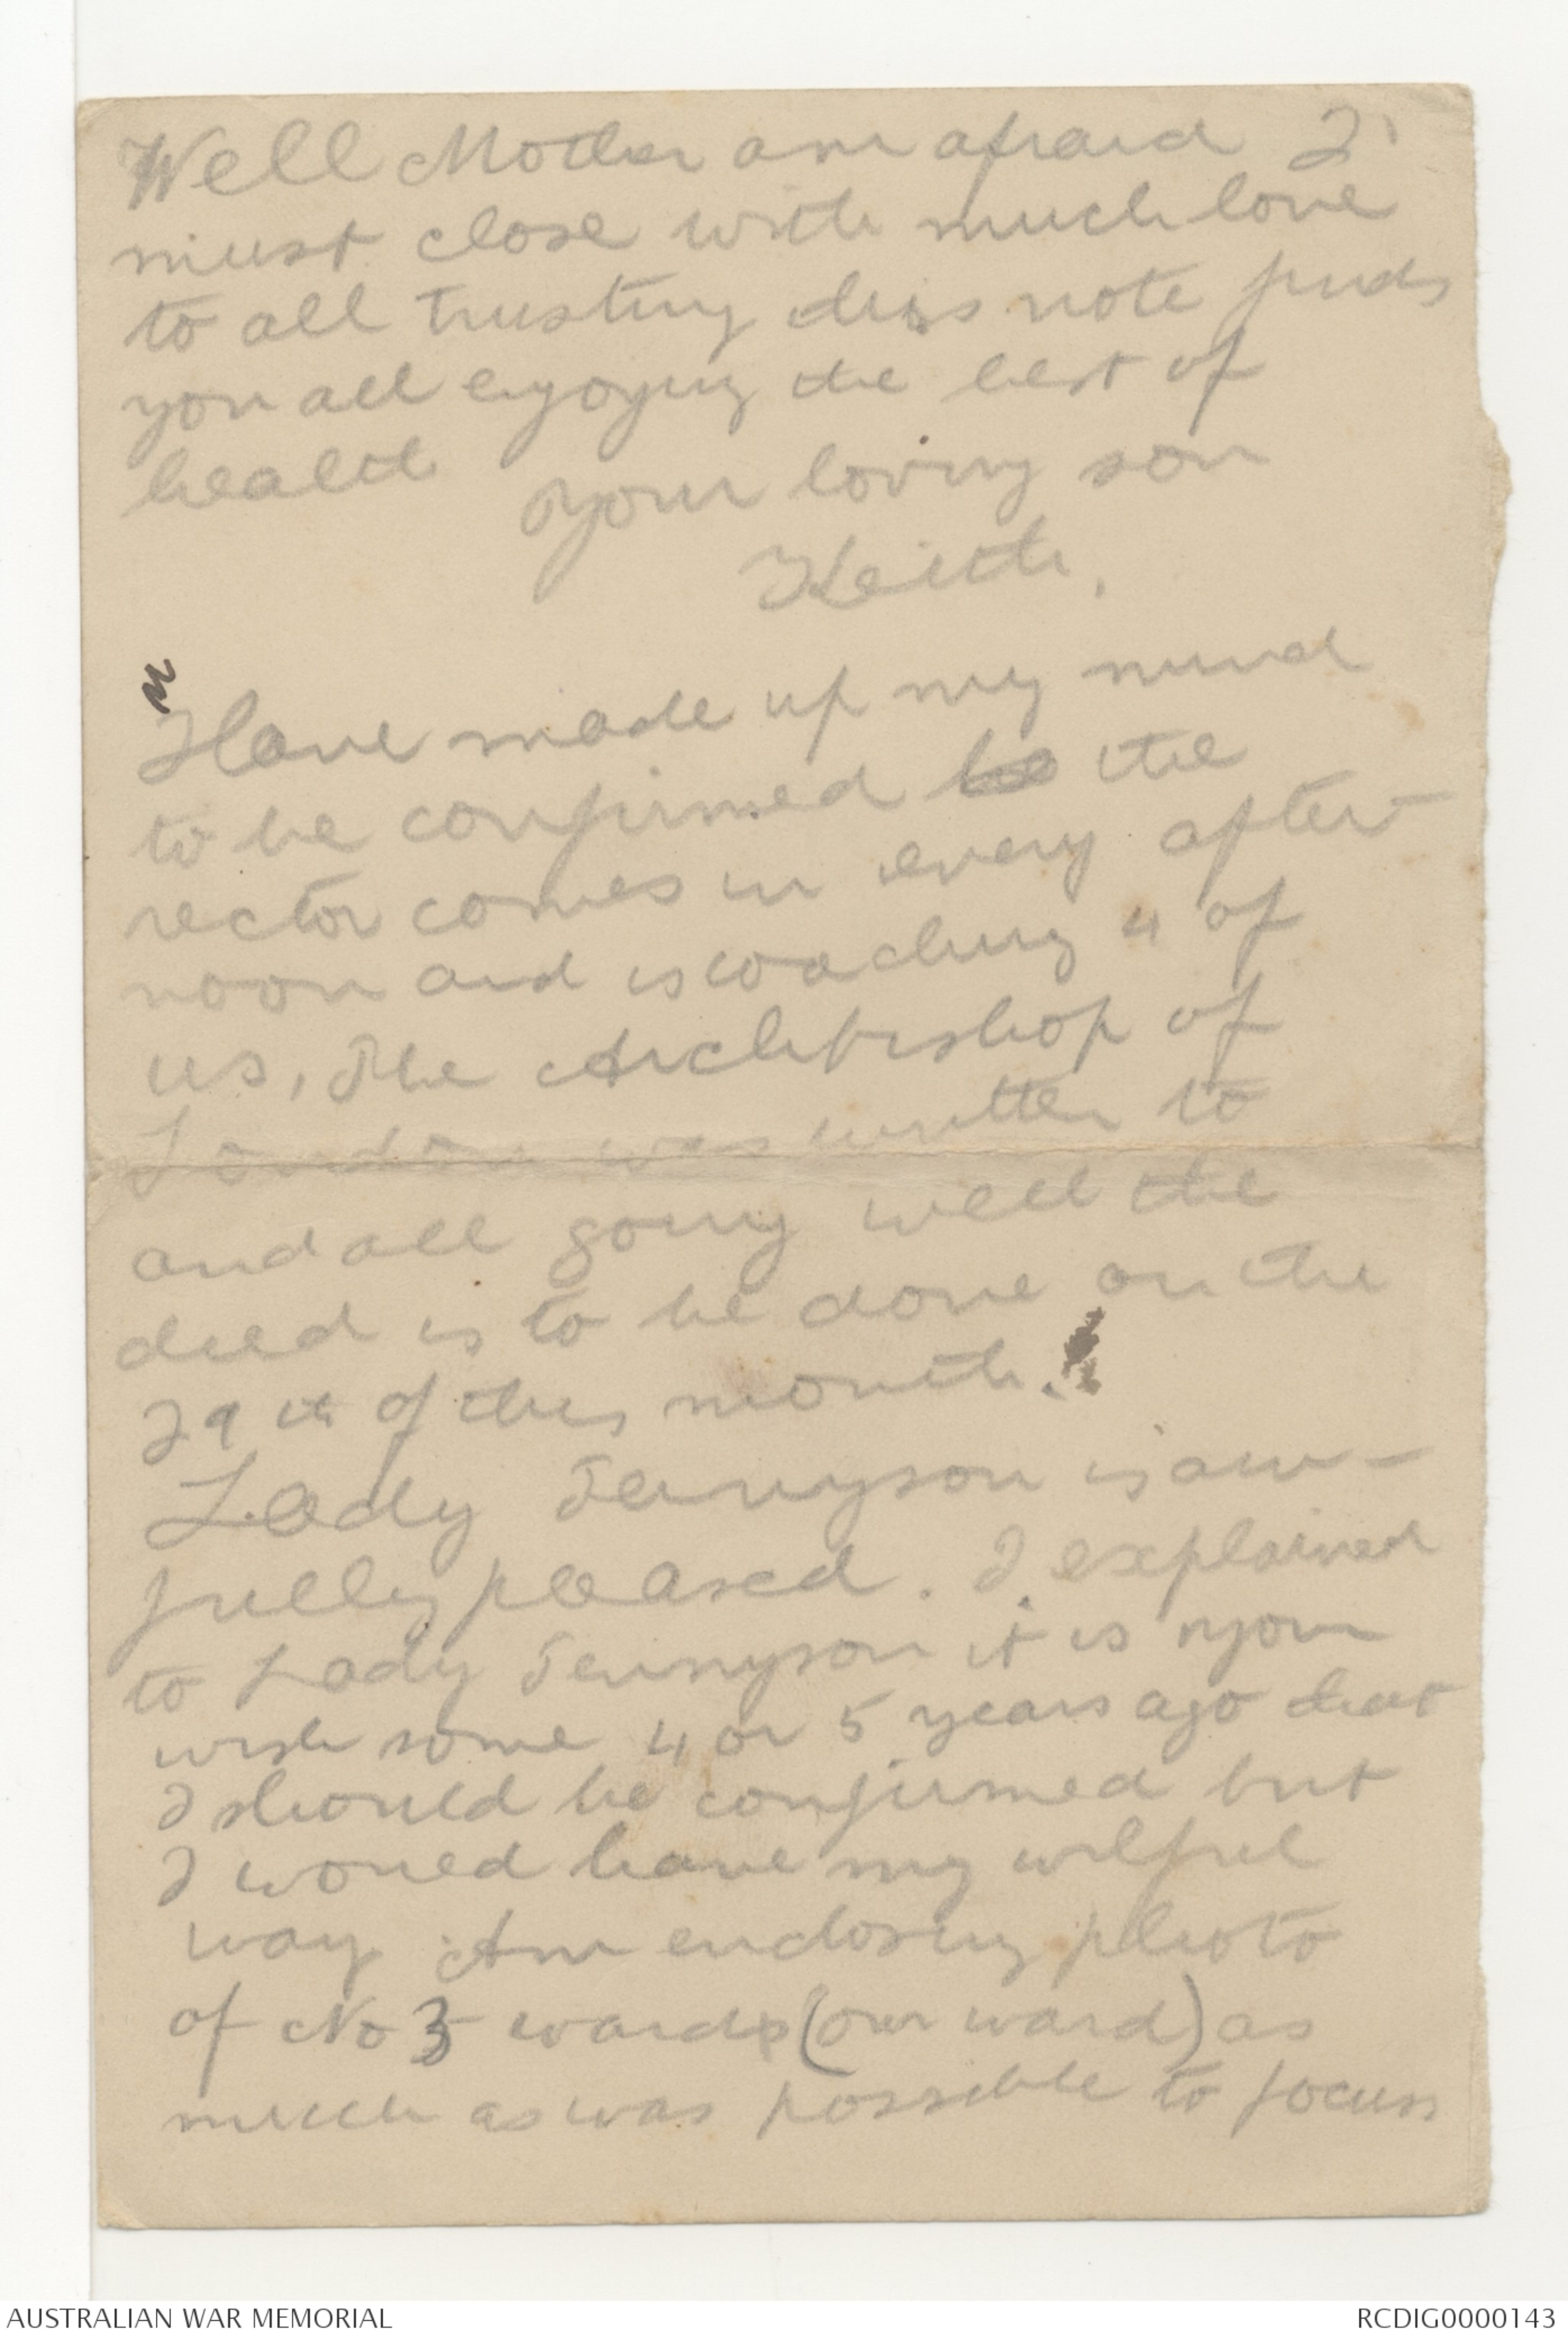 Well Mother am afraid I
must close with much love
to all trusting this note finds
you all enjoying the best of
health
Your loving son
Keith.
Have made up my mind
to be confirmed be the
rector comes in every after-
noon and is coaching 4 of
us, The Archbishop of
London was written to
and all going well the
deed is to be done on the
29th of this month.
Lady Tennyson is aw-
fully pleased. I explained
to Lady Tennyson it is your
wish some 4 or 5 years ago that
I should be confirmed but
I would have my wilful
way Am enclosing photo
of No 3 ward (our ward) as
much as was possible to focus
AUSTRALIAN WAR MEMORIAL
RCDIG0000143